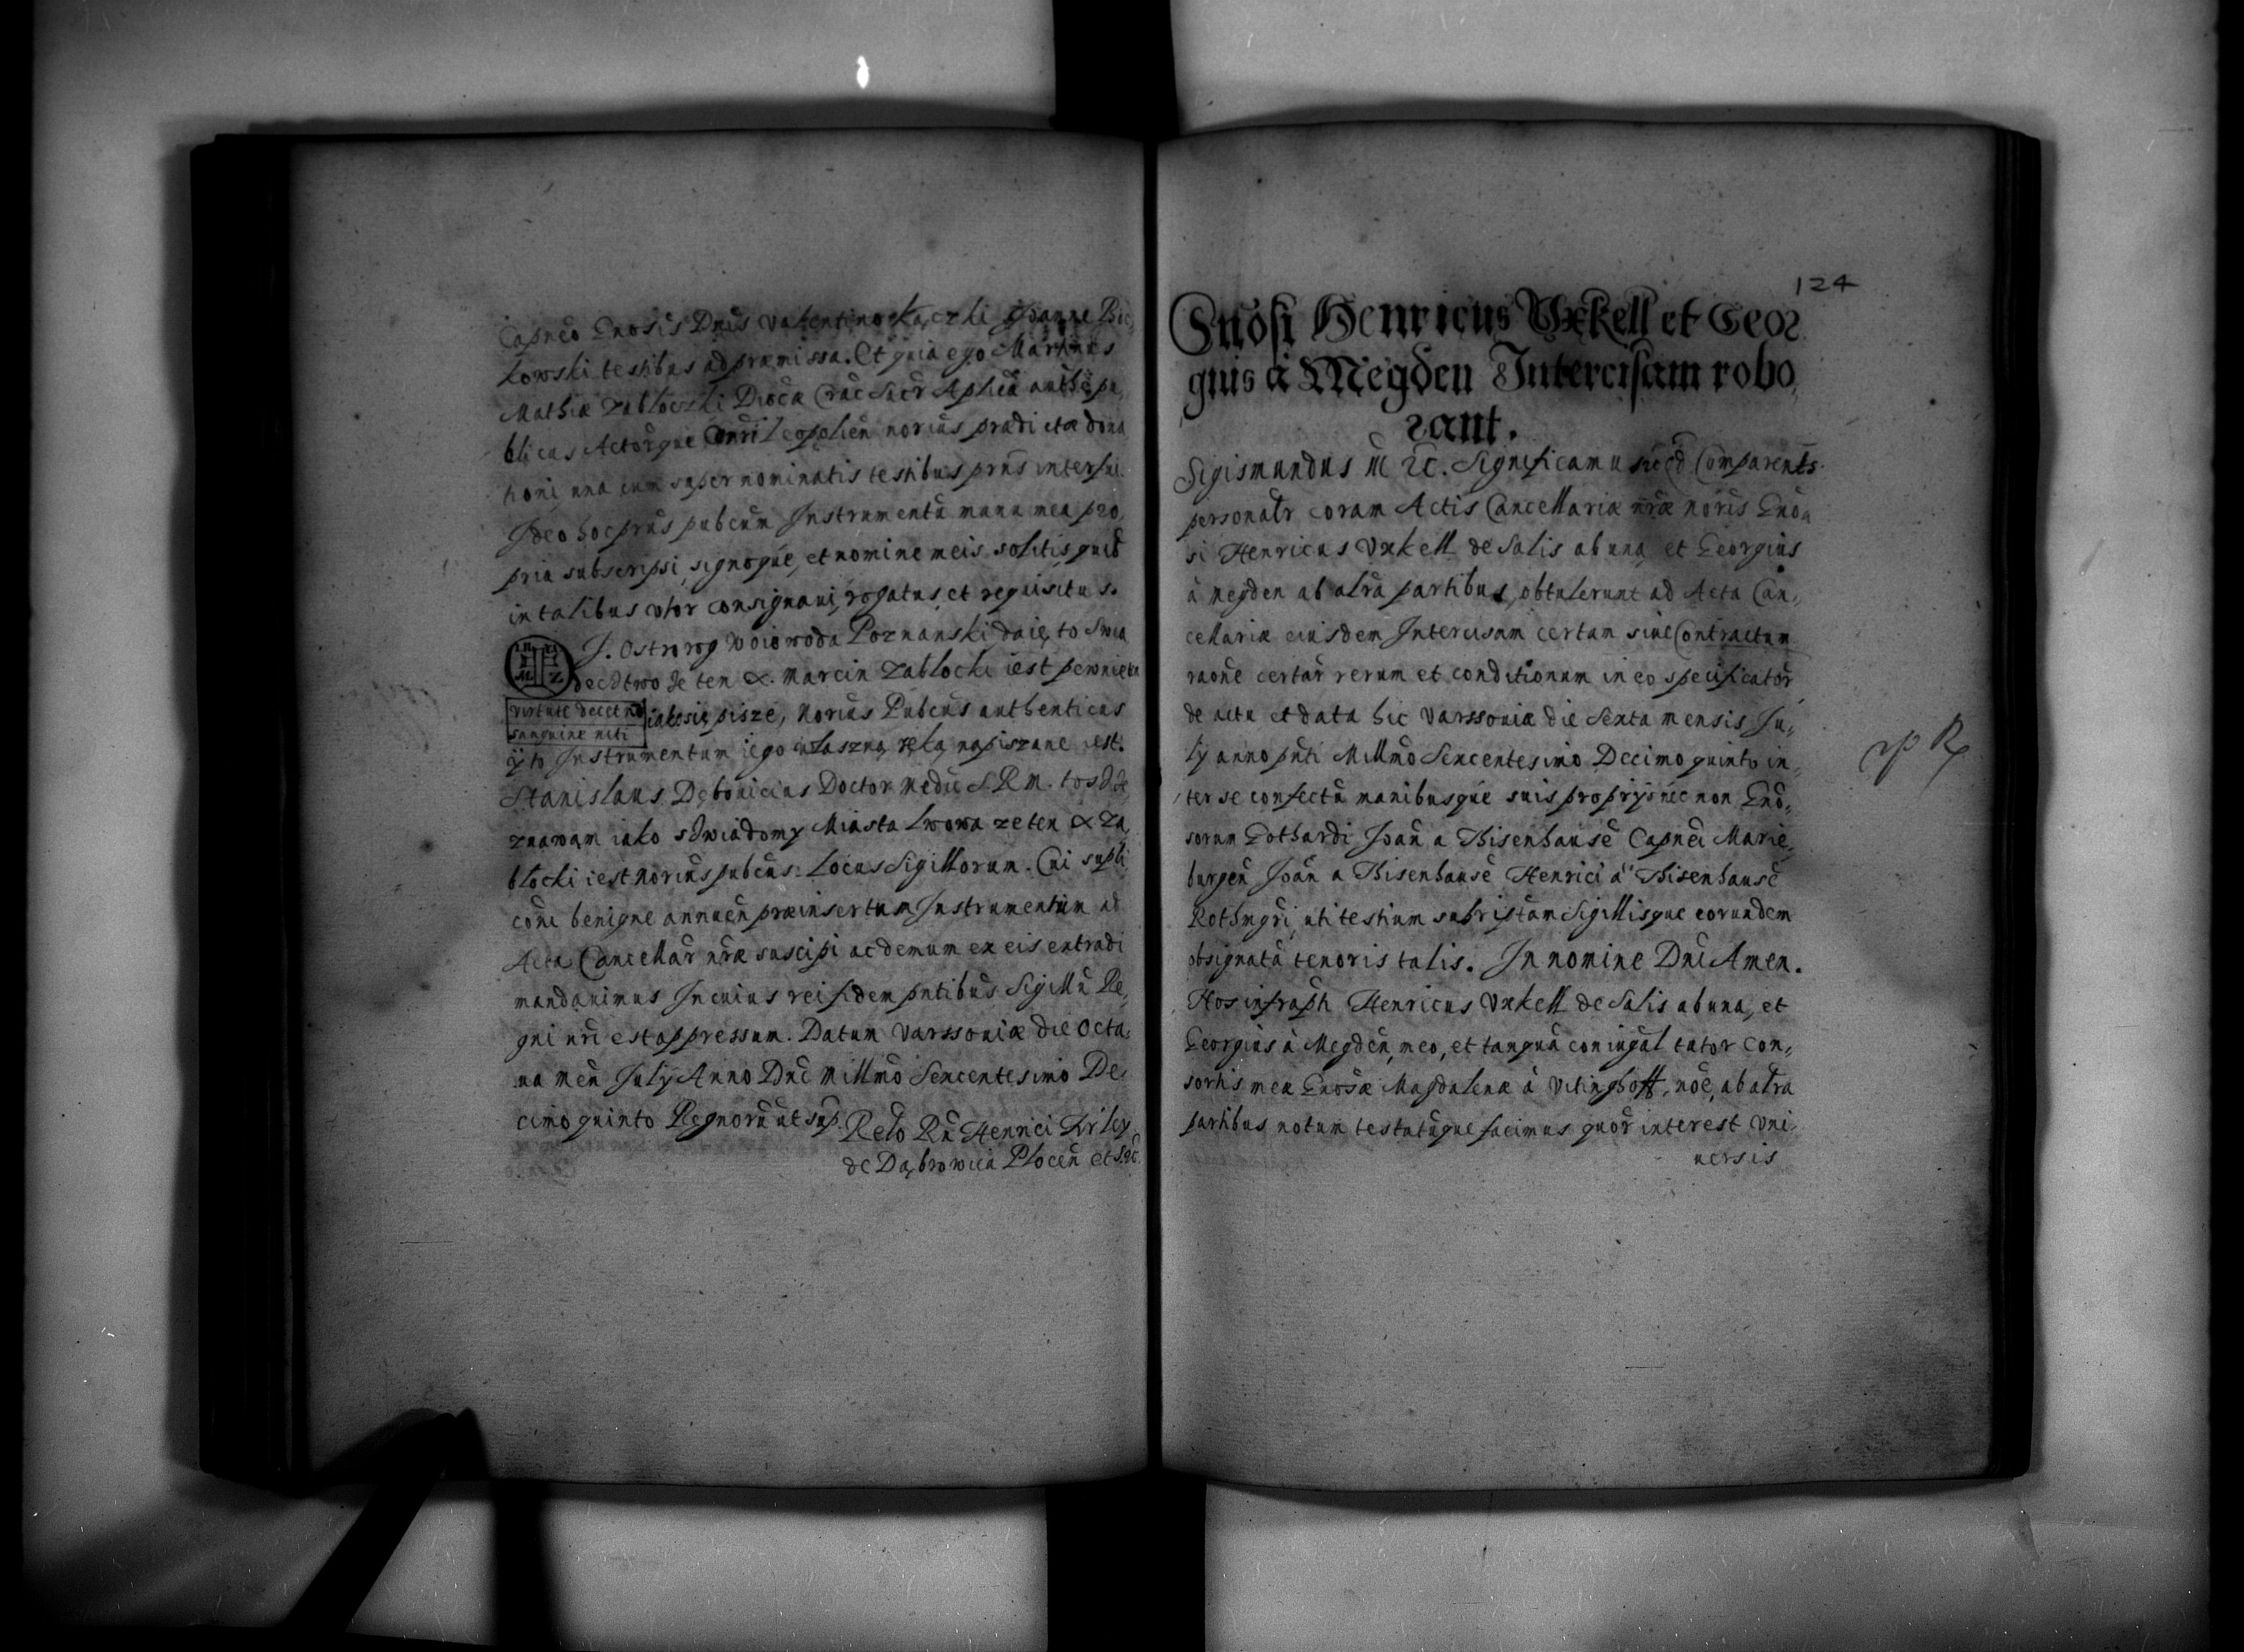 Capneo Gnosis Dnis Valentino Kaczki Joanne Bie,
kowski testibus ad præmissa. Et quia ego Martinus
Mathiæ Zabloczki Dioca Crac Sacr Aplica authe pu,
blicus Actorque Leopolien norius prædictæ dona
tioni una cum supernominatis testibus prns interfui
Ideo hoc prns pubcum Instrumentu manu mea pro,
pria subscripsi, signoque, et nomine meis solitis, quib
in talibus utor consignaui, rogatus, et requisitus.
J. Ostrorog Woiewoda Poznanski daię to swia
dectwo że ten X. Marcin Zablocki iest pewnie
virtute decet no
sanguine niti
iako się pisze, Norius Pubcus authenticus
y to Instrumentum iego właszną ręką napiszane iest.
Stanislaus Dębonicius Doctor Medic S.R.M. tosz że
znawam iako swiadomy Miasta Lwowa ze ten X Za,
blocki iest Norius pubcus. Locus Sigillorum. Cui supli
coni benigne annuen præinsertum Instrumentum ad
Acta Cancellar nræ suscipi ac demum ex eis extradi
mandauimus In cuius rei fidem pntibus Sigillu Re,
gni nri est appressum. Datum Varssouiæ die Octa,
ua men July Anno Dni Millmo Sexcentesimo De,
cimo quinto Regnoru ut sup.
Relo Rn Henrici Firley
de Dąbrowica Plocen et S.RC.
124
Gnosi Henricus Vxkell et Geor
gius à Megden Intercisam robo,
rant.
Sigismundus III ec. Significamus Comparentes
personalr coram Actis Cancellariæ nræ noris Gno,
si Henricus Vxkell de Salis ab una, et Georgius
à Megden ab altra partibus, obtulerunt ad Acta Can,
cellariæ eiusdem Intercisam certam siue Contractum
raone certar rerum et conditionum in eo specificator
de actu et data hic Varssouiæ die Sexta mensis Ju,
ly anno pnti Millmo Sexcentesimo Decimo quinto in,
ter se confectu manibusque suis proprys nec non Gno,
sorum Gothardi Joan a Thisenhause Capnei Marie,
burgen Joan a Thisenhause Henrici à Thisenhause
Rothmgri, uti testium subristam Sigillisque eorundem
obsignata tenoris talis. In nomine Dni Amen.
Nos infraph Henricus Vxkell de Salis ab una, et
Georgius à Megden, meo, et tanqua coniugal tutor Con,
sortis mea Gnosæ Magdalenæ à Vitinghoff, noe, ab altra
partibus notum testatuque facimus quor interest Vni
uersis